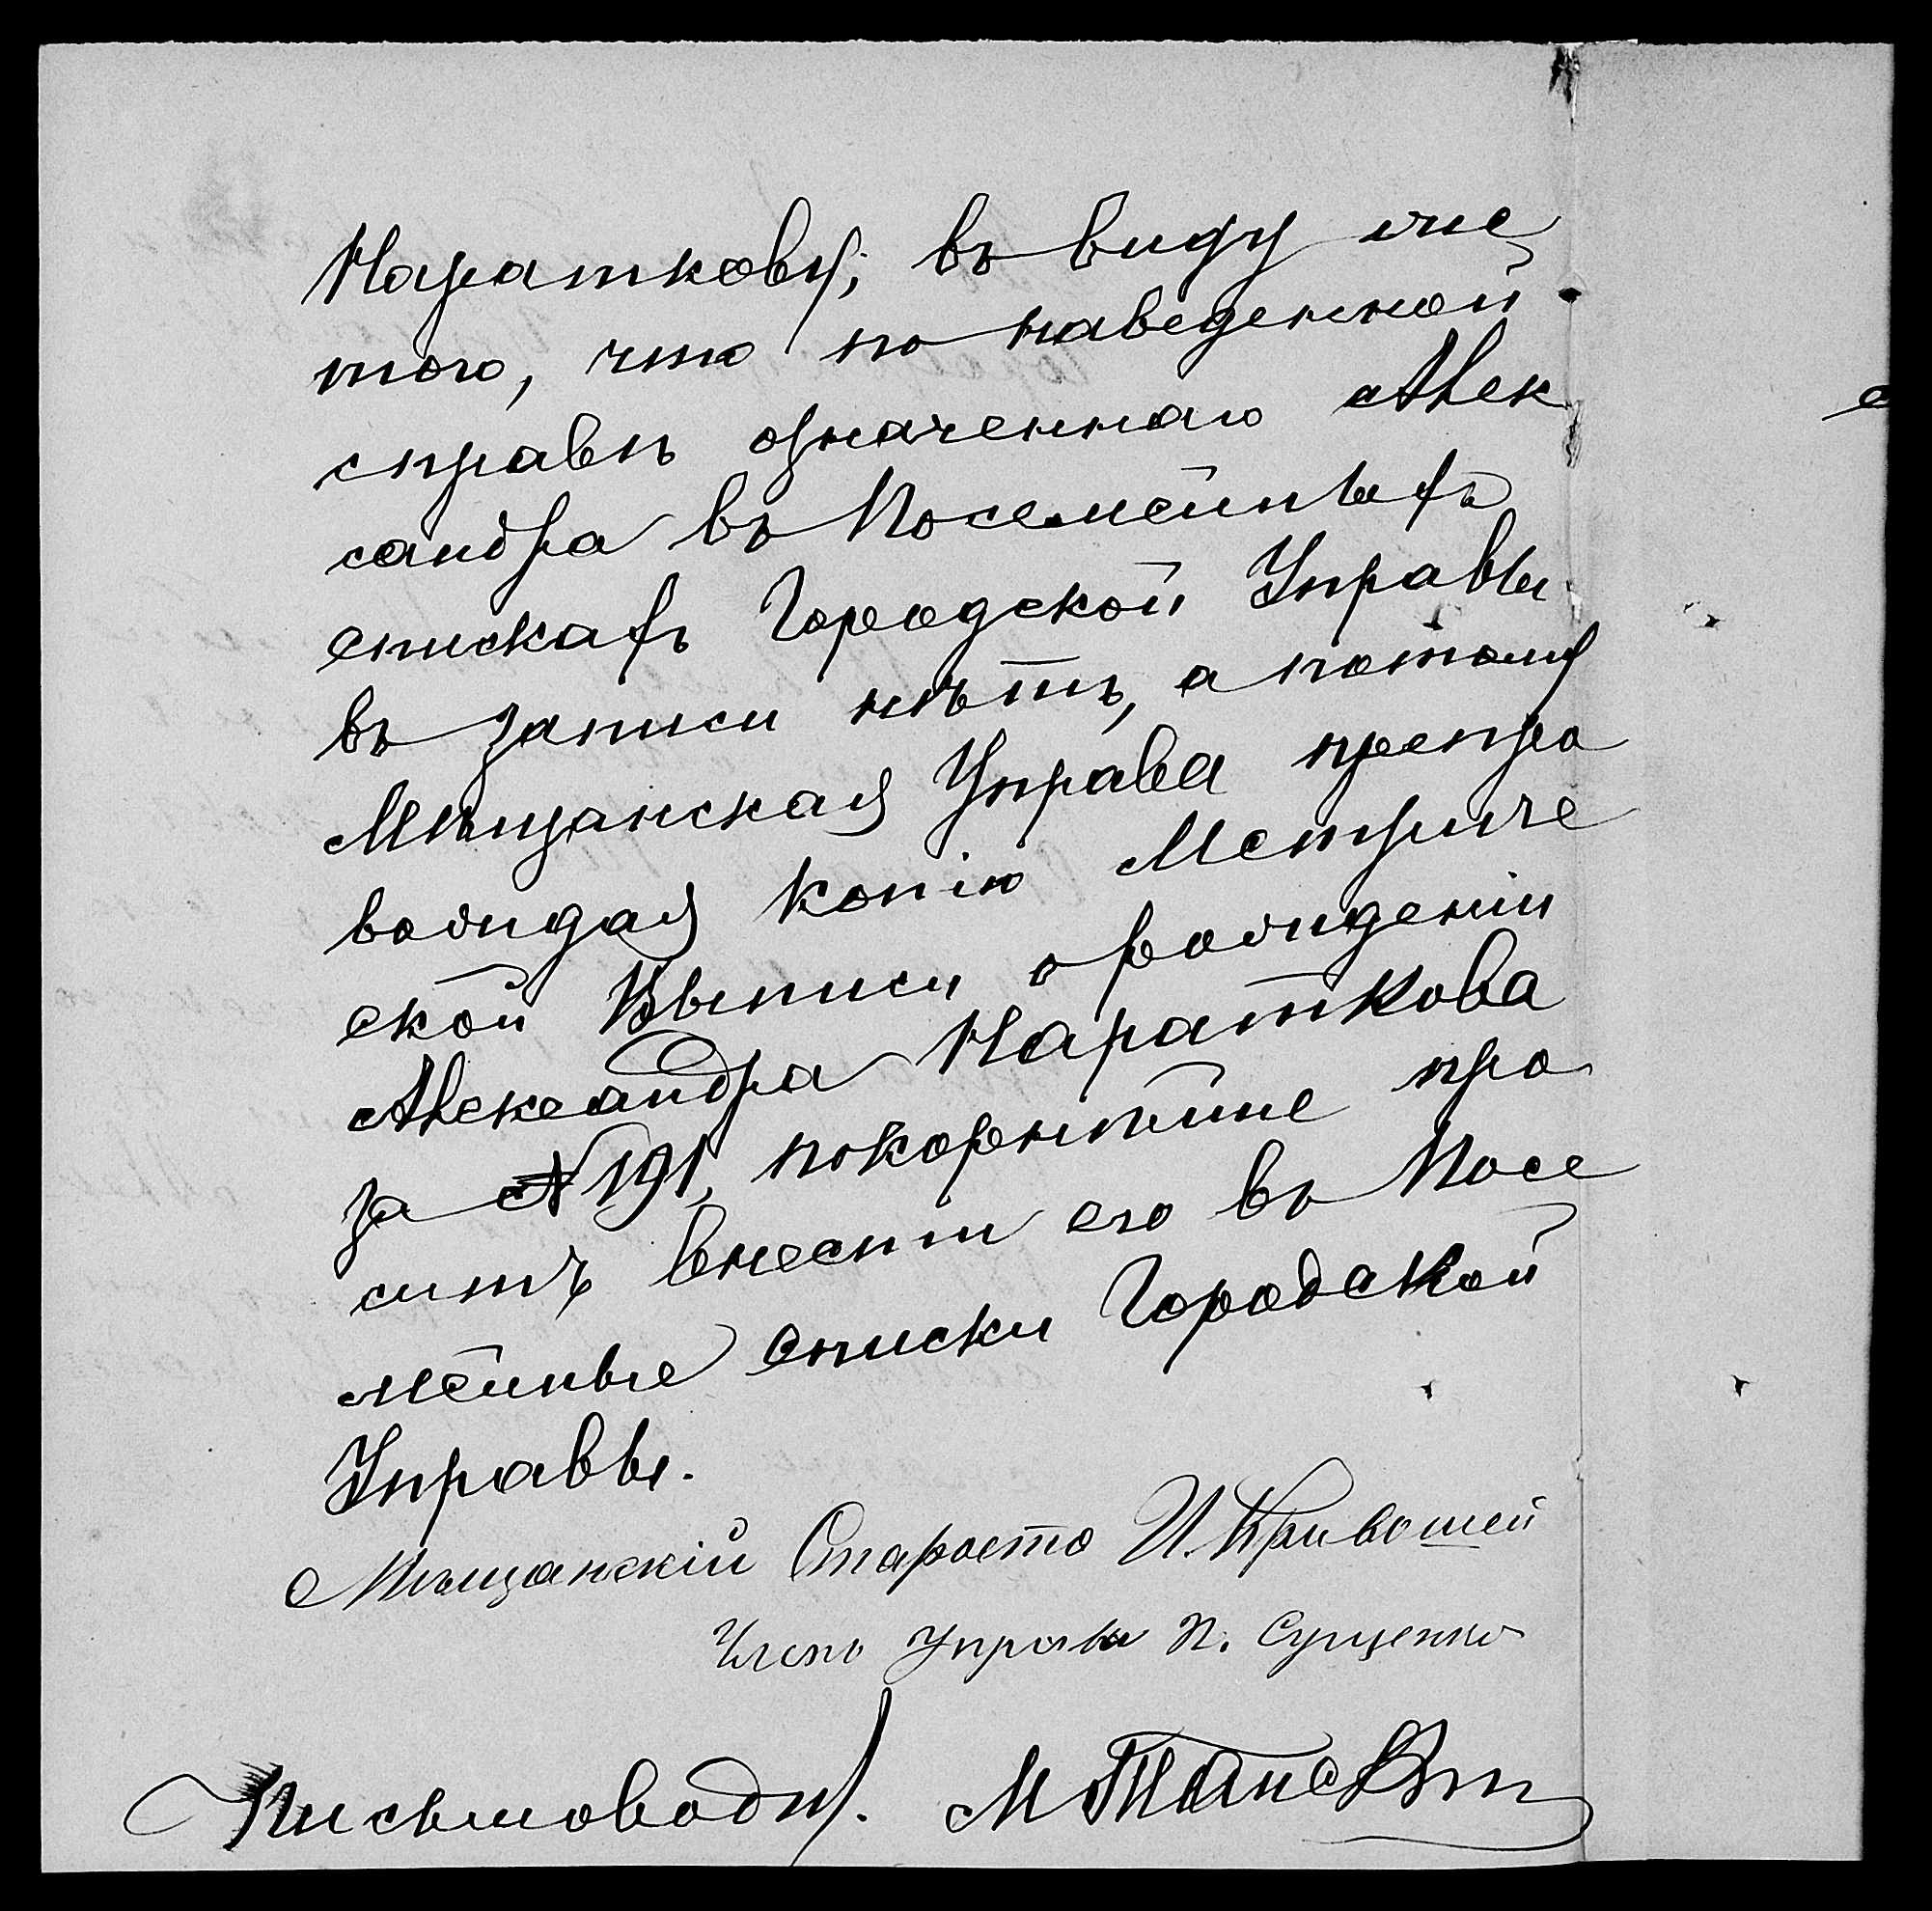 Караткову; въ виду же
того, что по наведенной
справкѣ означеннаго Алек
сандра въ Посемейныхъ
спискахъ Городской Управы
въ записи нѣтъ, а потому
Мѣщанская Управа препро
вождая копію Метриче
ской Выписи о рожденіи
Александра Караткова
за № 191, покорнѣйше про
ситъ внести его въ Посе
мейные списки Городской
Управы.
Мѣщанскій Староста И. Кривошей
Членъ Управы П. Сущенко
Письмовод. М